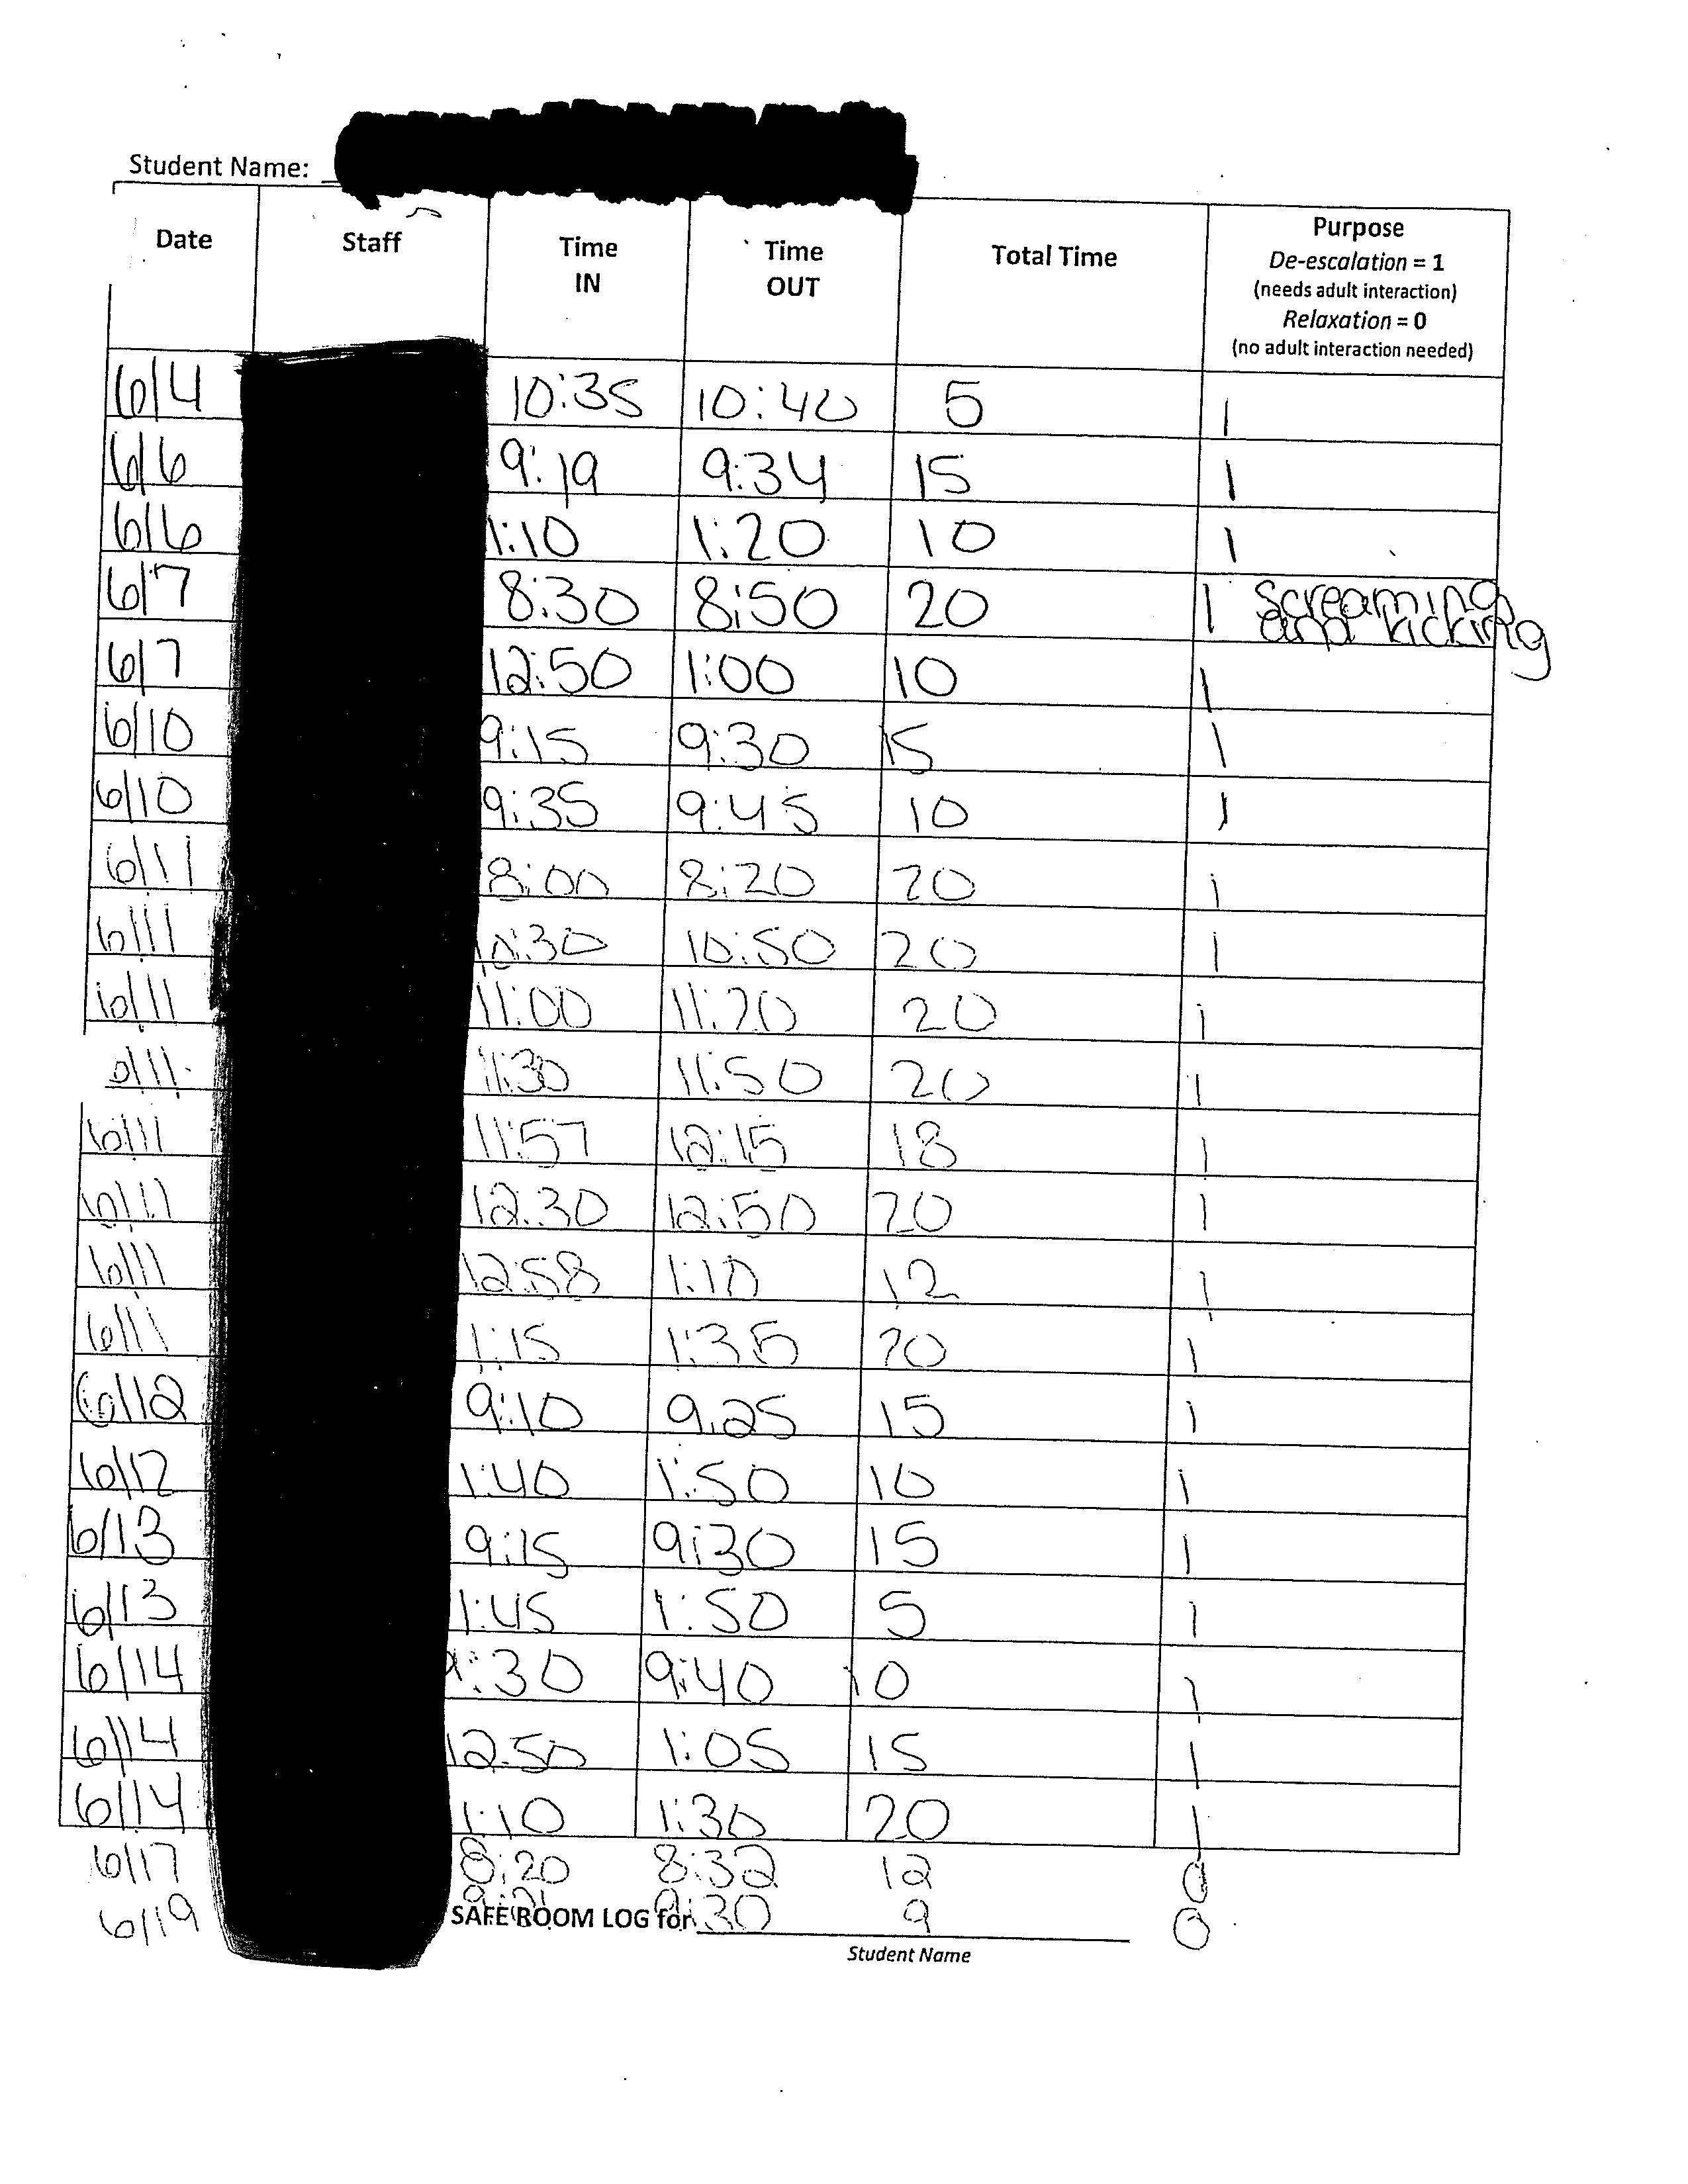 Student Name:
Date Staff Time IN Time OUT Total Time Purpose
De-escalation = 1
(needs adult interaction)
Relaxation = 0
(no adult interaction needed)
6/4 10:35 10:40 5 1
6/6 9:19 9:34 15 1
6/6 1:10 1:20 10 1
6/7 8:30 8:50 20 1 screaming and kicking
6/7 12:50 1:00 10 1
6/10 9:15 9:30 15 1
6/10 9:35 9:45 10 1
6/11 8:00 8:20 20 1
6/11 10:30 10:50 20 1
6/11 11:00 11:20 20 1
6/11 11:30 11:50 20 1
6/11 11:57 12:15 18 1
6/11 12:30 12:50 20 1
6/11 12:58 1:10 12 1
6/11 1:15 1:35 20 1
6/12 9:10 9:25 15 1
6/12 1:40 1:50 10 1
6/13 9:15 9:30 15 1
6/13 1:45 1:50 5 1
6/14 9:30 9:40 10 1
6/14 12:50 1:05 15 1
6/14 1:10 1:30 20 1
6/17 8:20 8:32 12 0
6/19 9:21 9:30 9 0
SAFE ROOM LOG for
Student Name